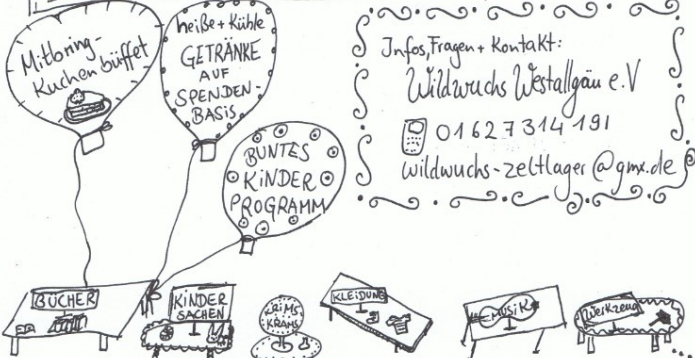 Mitbring-
Kuchenbüffet
heiße + Kühle
GETRÄNKE
AUF
SPENDEN-
BASIS
BUNTES
KINDER
PROGRAMM
Infos, Fragen + Kontakt:
Wildwuchs Westallgäu e.V
01627314191
wildwuchs-zeltlager@gmx.de
BÜCHER
KINDER
SACHEN
KRIMS
KRAMS
KLEIDUNG
MUSIK
Werkzeug